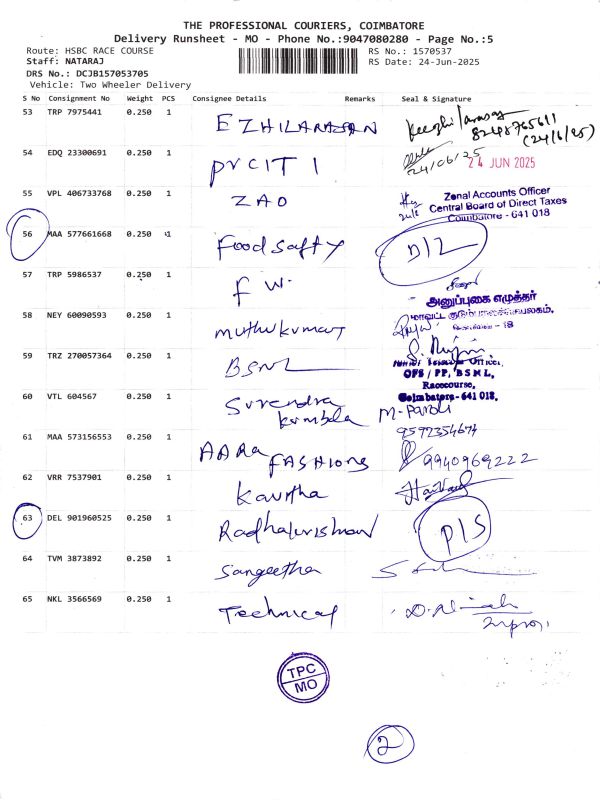 THE PROFESSIONAL COURIERS, COIMBATORE
Delivery Runsheet - MO - Phone No.:9047080280 - Page No.:5
Route: HSBC RACE COURSE
RS No.: 1570537
Staff: NATARAJ
RS Date: 24-Jun-2025
DRS No.: DCJB157053705
Vehicle: Two Wheeler Delivery
S No Consignment No Weight PCS Consignee Details Remarks Seal & Signature
53 TRP 7975441 0.250 1 EZHILARASAN
8248765611
(24/6/25)
54 EDQ 23300691 0.250 1 PrCIT 1 24/06/25 24 JUN 2025
55 VPL 406733768 0.250 1 ZAO
Zonal Accounts Officer
Central Board of Direct Taxes
Coimbatore - 641 018
56 MAA 577661668 0.250 1 Food safty D/L
57 TRP 5986537 0.250 1 F W.
அனுப்புகை எழுத்தர்
58 NEY 60090593 0.250 1 muthukumar
59 TRZ 270057364 0.250 1 BSNL
OFS / PP, BSNL,
Racecourse,
Coimbatore - 641 018.
60 VTL 604567 0.250 1 Surendra
kumbla
9592354674
61 MAA 573156553 0.250 1 AARA FASHIONS 9940969222
62 VRR 7537901 0.250 1 Kavitha
63 DEL 901960525 0.250 1 Radhakrishnan P/S
64 TVM 3873892 0.250 1 Sangeetha
65 NKL 3566569 0.250 1 Technical
TPC
MO
2